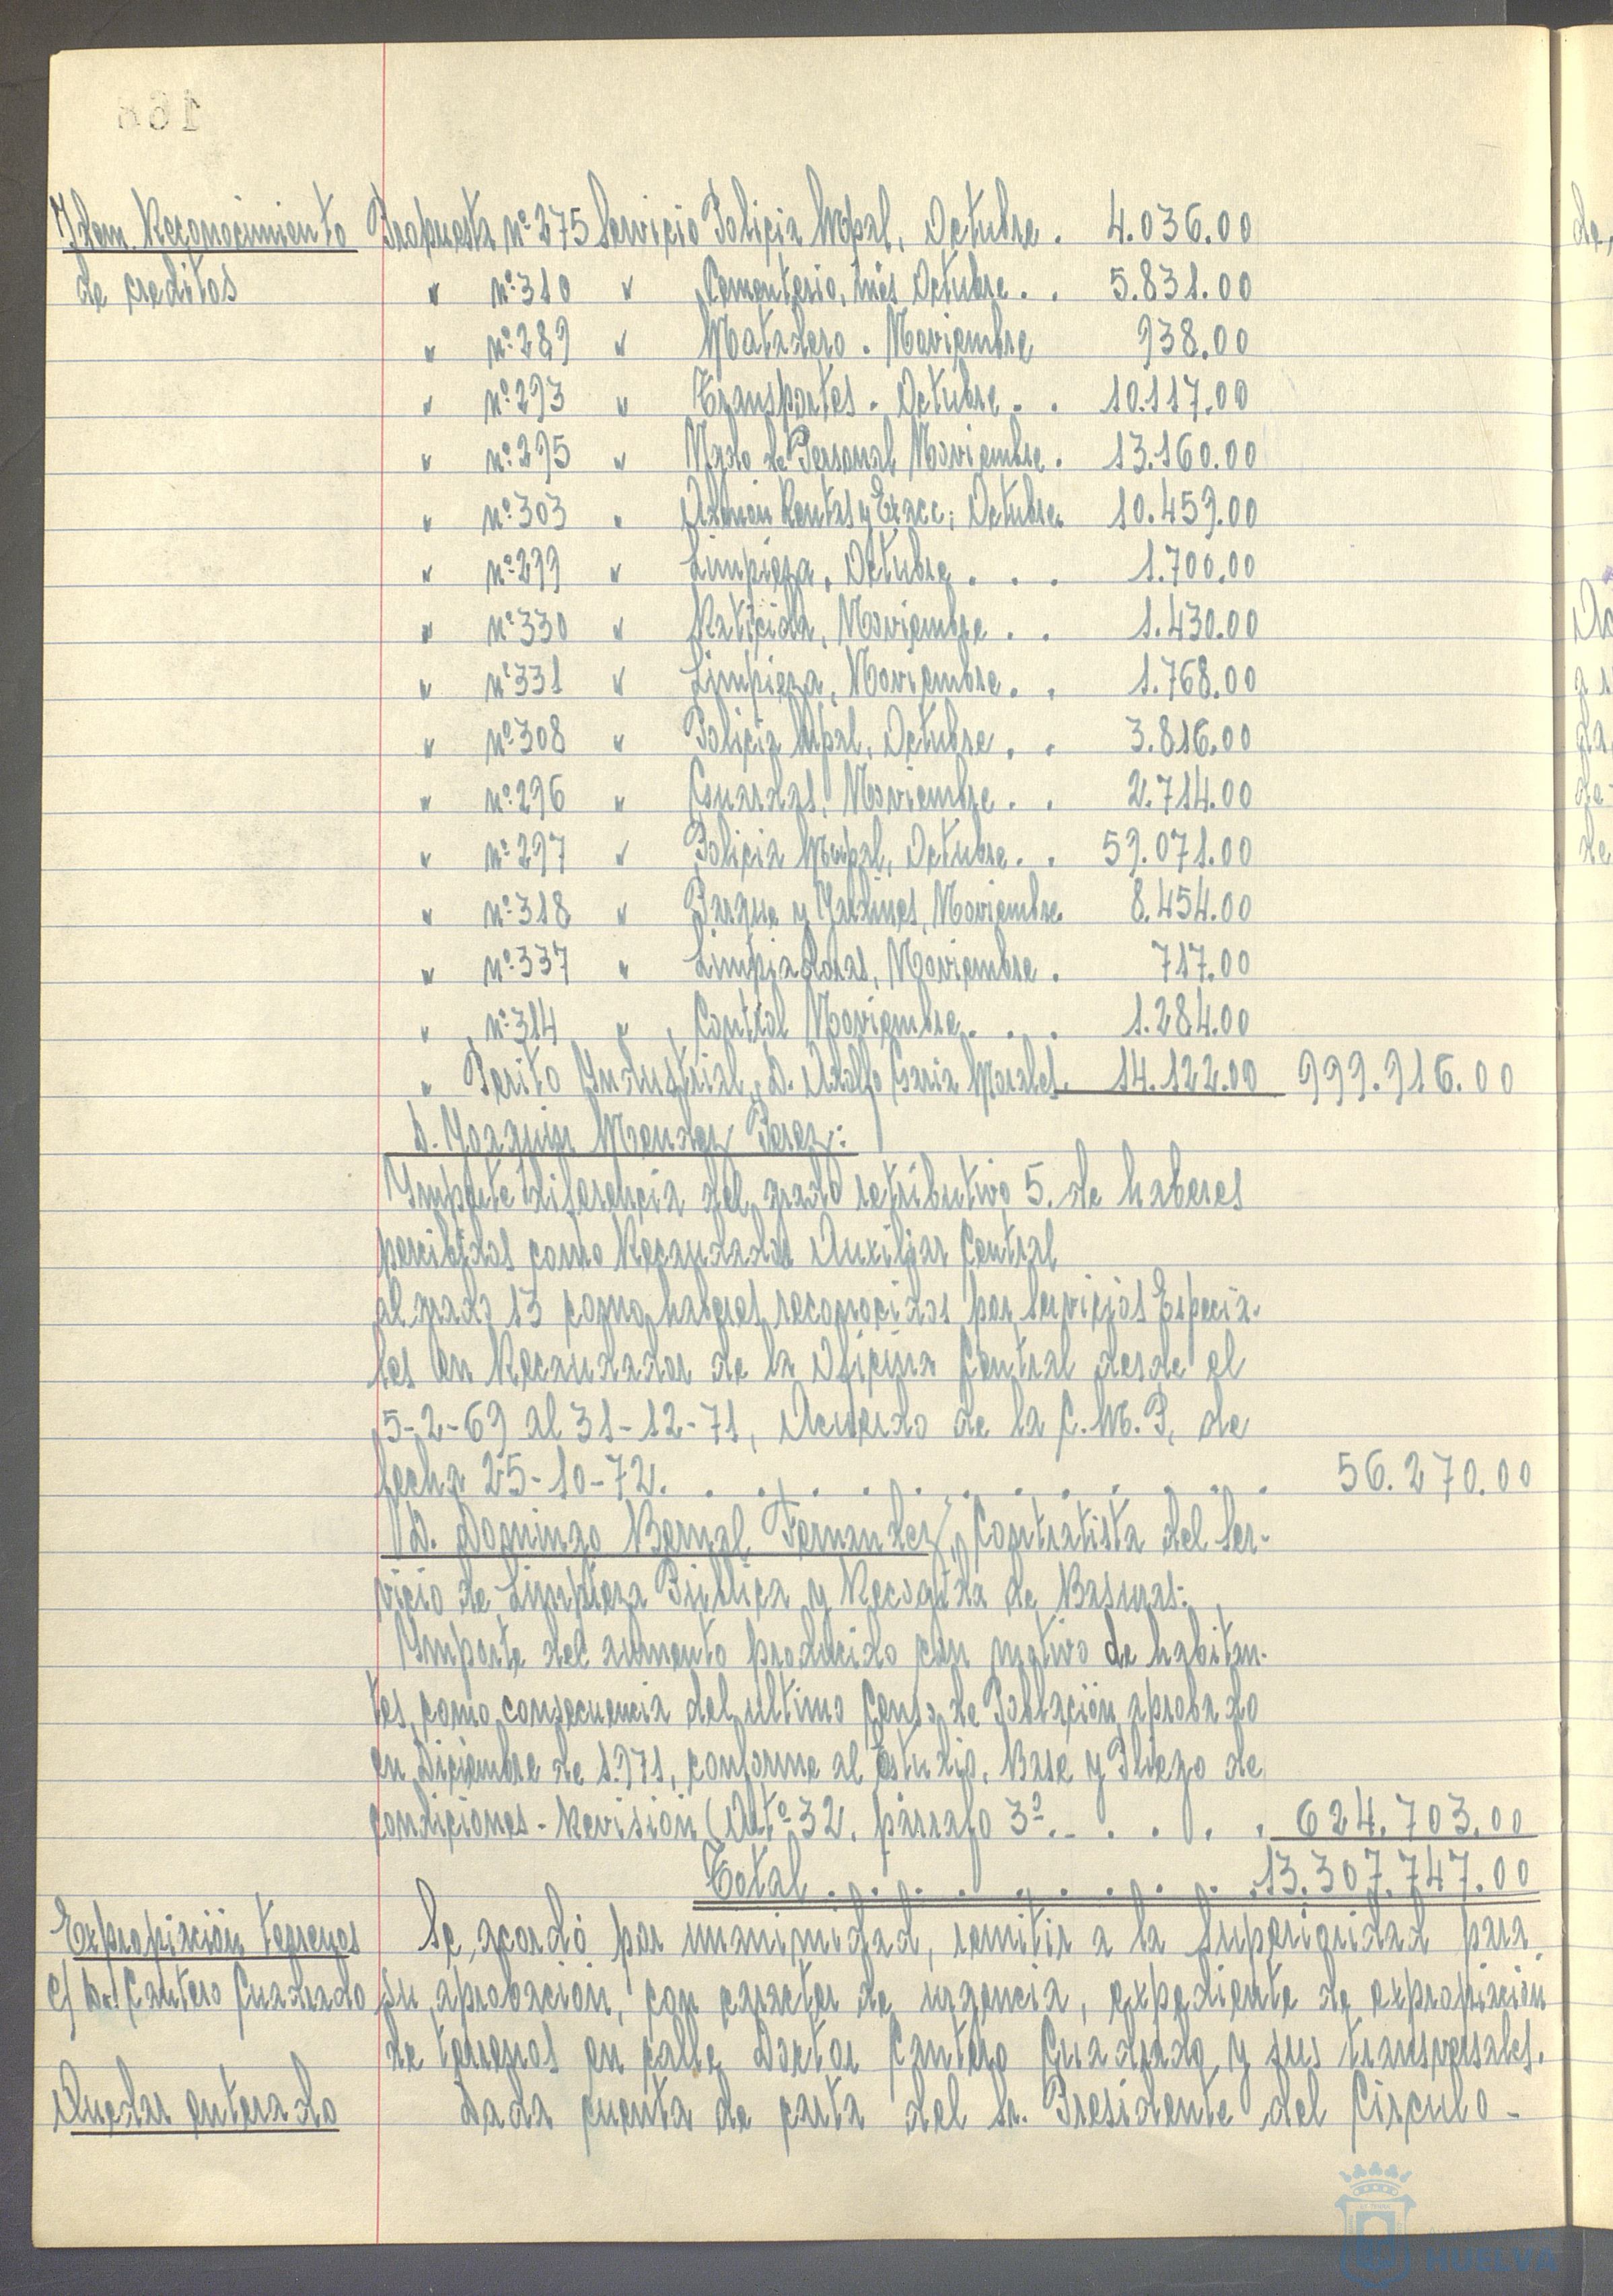 168
Idem. Reconocimiento
de creditos
Propuesta nº 275 Servicio Policia Mpal, Octubre . 4.036.00
" nº 310 " Cementerio, mes Octubre . . 5.831.00
" nº 289 " Matadero . Noviembre 938.00
" nº 293 " Transportes . Octubre . . 10.117.00
" nº 295 " Ngdo de Personal Noviembre . 13.160.00
" nº 303 " Admón Rentas y Exacc; Octubre. 10.459.00
" nº 299 " Limpieza, Octubre . . . 1.700.00
" nº 330 " Raticida, Noviembre . . 1.430.00
" nº 331 " Limpieza, Noviembre . . 1.768.00
" nº 308 " Policia Mpal, Octubre . . 3.816.00
" nº 296 " Guardas, Noviembre . . 2.714.00
" nº 297 " Policia Mupal, Octubre . . 59.071.00
" nº 318 " Parque y Jardines, Noviembre. 8.454.00
" nº 337 " Limpiadoras, Noviembre . 717.00
" nº 314 " Control Noviembre . . . 1.284.00
" Perito Industrial, D. Adolfo Garia Morales. 14.122.00 999.916.00
D. Joaquin Mendez Perez:
Importe diferencia del grado retributivo 5. de haberes
percibidos como Recaudador Auxiliar Central
al grado 13 como haberes reconocidos por Servicios Especia-
les en Recaudador de la Oficina Central desde el
5-2-69 al 31-12-71, Acuerdo de la C.M.P, de
fecha 25-10-72. . . . . . . . . . . . . 56.270.00
D. Domingo Bernal Fernandez, Contratista del Ser-
vicio de Limpieza Pública y Recogida de Basuras:
Importe del aumento producido con motivo de habitan-
tes, como consecuencia del ultimo Censo de Población aprobado
en Diciembre de 1.971, conforme al estudio, Base y Pliego de
condiciones - Revisión (Artº 32, párrafo 3º. . . . . . 624.703.00
Total . . . . . . . . . . 13.307.747.00
Expropiación terrenos
c/ Dr. Cantero Cuadrado
Se acordó por unanimidad, remitir a la Superioridad para
su aprobación, con caracter de urgencia, expediente de expropiación
de terrenos en calle Doctor Cantero Cuadrado y sus transversales.
Quedar enterado
Dada cuenta de carta del Sr. Presidente del Circulo -
HUELVA